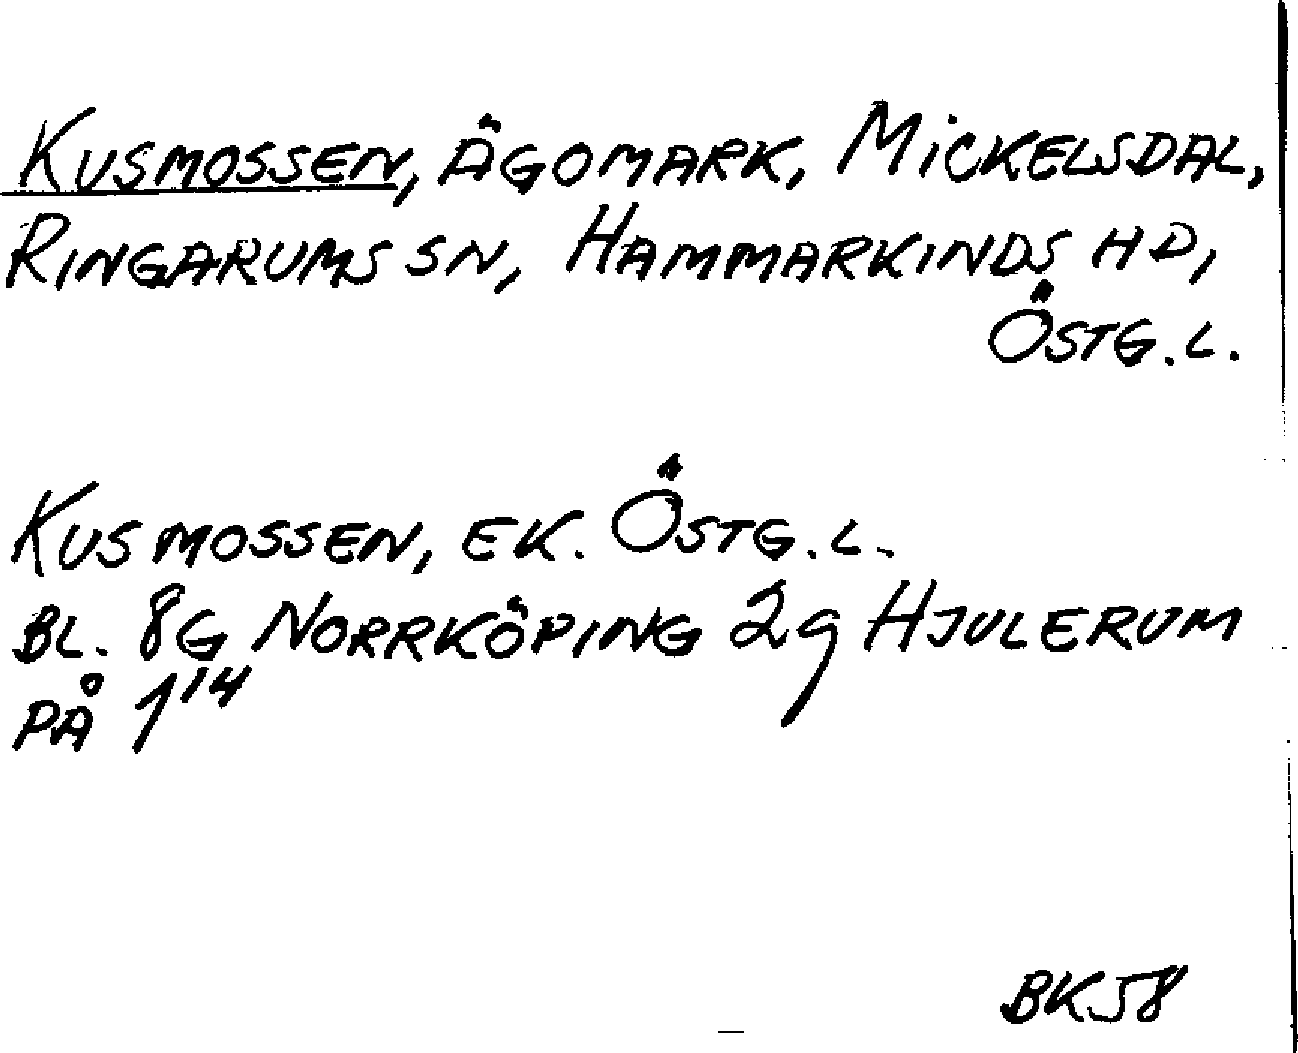 KUSMOSSEN, ÄGOMARK, MICKELSDAL,
RINGARUMS SN, HAMMARKINDS HD,
ÖSTG.L.
KUSMOSSEN, EK. ÖSTG.L.
BL. 8G NORRKÖPING 2g HJULERUM
PÅ 1¹⁴
BK58